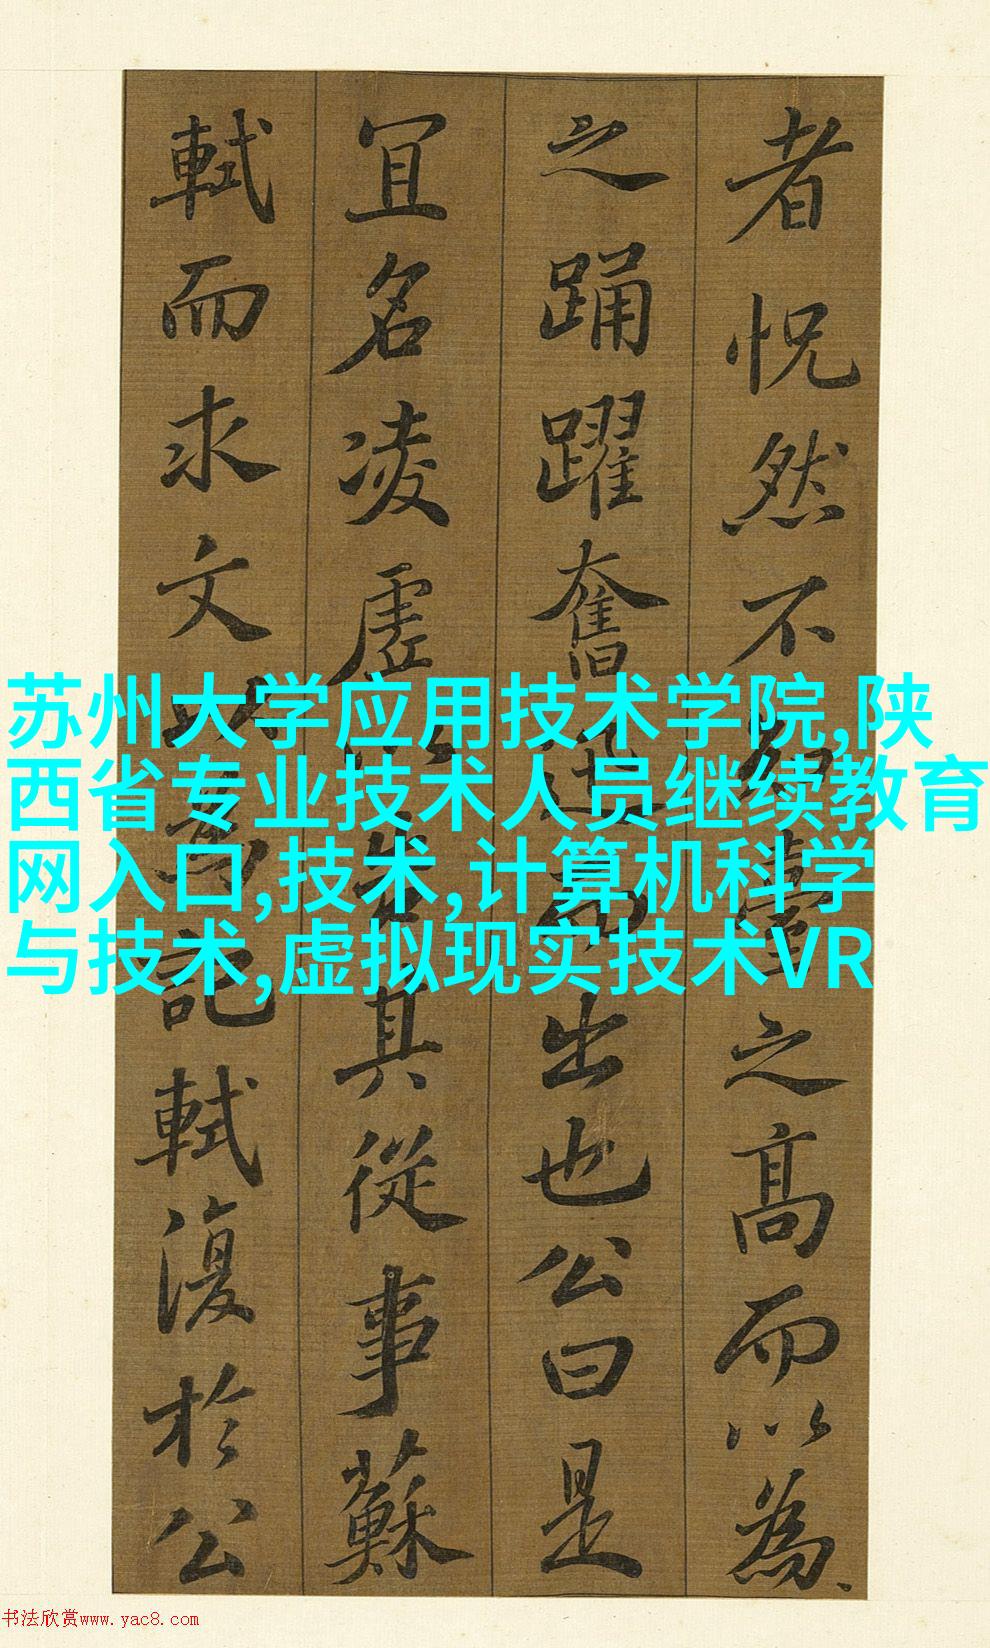 者怳然不知臺之高而以為
之踊躍奮迅而出也公曰是
冝名凌虛以告其從事蘇
軾而求文以為記軾復於公
苏州大学应用技术学院,陕
西省专业技术人员继续教育
网入口,技术,计算机科学
与技术,虚拟现实技术VR
书法欣赏www.yac8.com